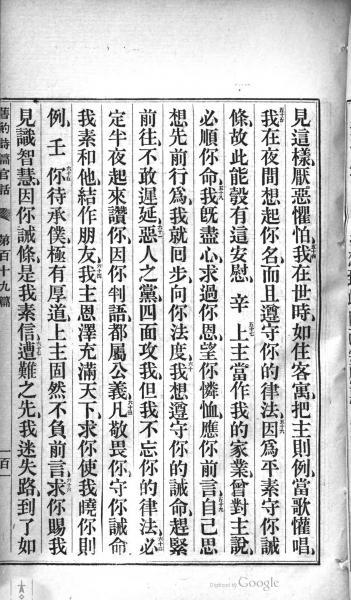 見這樣厭惡懼怕我在世時如住客寓把主則例當歌懽唱
我在夜間想起你名而且遵守你的律法因爲平素守你誡
條故此能彀有這安慰 辛 上主當作我的家業曾對主說
必順你命我既盡心求過你恩望你憐恤應你前言自己思
想先前行爲我就回步向你法度我想遵守你的誡命趕緊
前往不敢遲延惡人之黨四面攻我但我不忘你的律法必
定半夜起來讚你因你判語都屬公義凡敬畏你守你誡命
我素和他結作朋友我主恩澤充滿天下求你使我曉你則
例 壬 你待承僕極有厚道上主固然不負前言求你賜我
見識智慧因你誡條是我素信遭難之先我迷失路到了如
舊約詩篇官話 第百十九篇 一百一
Digitized by Google